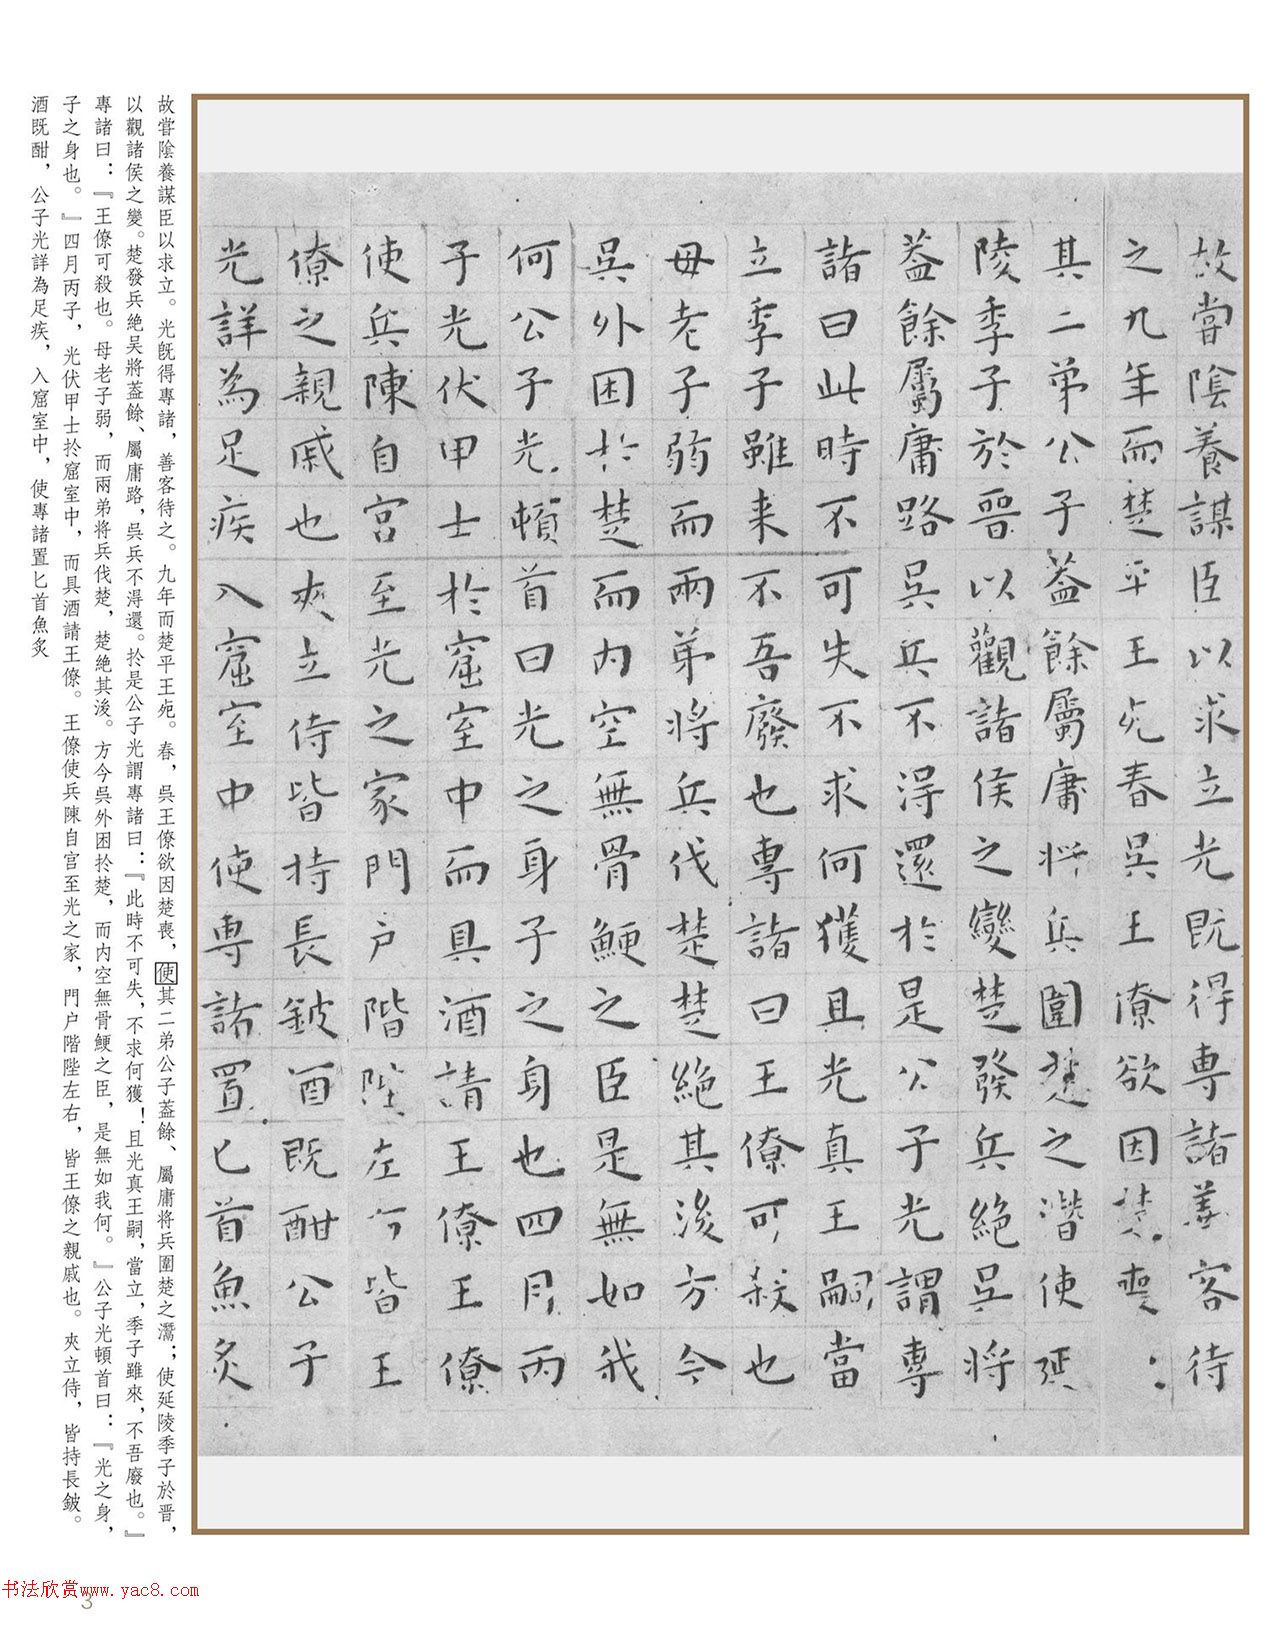 故嘗陰養謀臣以求立光既得專諸善客待
之九年而楚平王死春吳王僚欲因楚喪
其二弟公子蓋餘屬庸將兵圍楚之潛使延
陵季子於晉以觀諸侯之變楚發兵絕吳將
蓋餘屬庸路吳兵不淂還於是公子光謂專
諸曰此時不可失不求何獲且光真王嗣當
立季子雖来不吾廢也專諸曰王僚可殺也
母老子弱而兩弟將兵伐楚楚絕其後方今
吳外困於楚而內空無骨鯁之臣是無如我
何公子光頓首曰光之身子之身也四月丙
子光伏甲士於窟室中而具酒請王僚王僚
使兵陳自宮至光之家門戶階陛左右皆王
僚之親戚也夾立侍皆持長鈹酒既酣公子
光詳為足疾入窟室中使專諸置匕首魚炙
故嘗陰養謀臣以求立。光既得專諸，善客待之。九年而楚平王死。春，吳王僚欲因楚喪，使其二弟公子蓋餘、屬庸將兵圍楚之灊；使延陵季子於晉，
以觀諸侯之變。楚發兵絕吳將蓋餘、屬庸路，吳兵不淂還。於是公子光謂專諸曰：『此時不可失，不求何獲！且光真王嗣，當立，季子雖來，不吾廢也。』
專諸曰：『王僚可殺也。母老子弱，而兩弟将兵伐楚，楚絶其後。方今吳外困於楚，而内空無骨鯁之臣，是無如我何。』公子光頓首曰：『光之身，
子之身也。』四月丙子，光伏甲士於窟室中，而具酒請王僚。王僚使兵陳自宫至光之家，門户階陛左右，皆王僚之親戚也。夾立侍，皆持長鈹。
酒既酣，公子光詳為足疾，入窟室中，使專諸置匕首魚炙
书法欣赏www.yac8.com
3